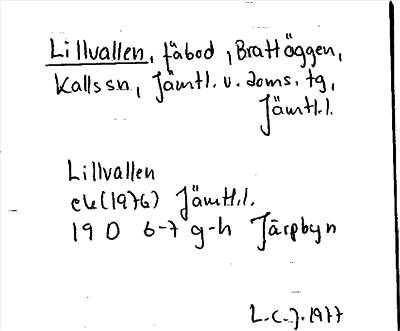 Lillvallen, fäbod, Brattäggen,
Kallssn, Jämtl. v. doms. tg,
Jämtl.l.
Lillvallen
ek(1976) Jämtl.l.
19 D 6-7 g-h Järpbyn
L.C.J. 1977